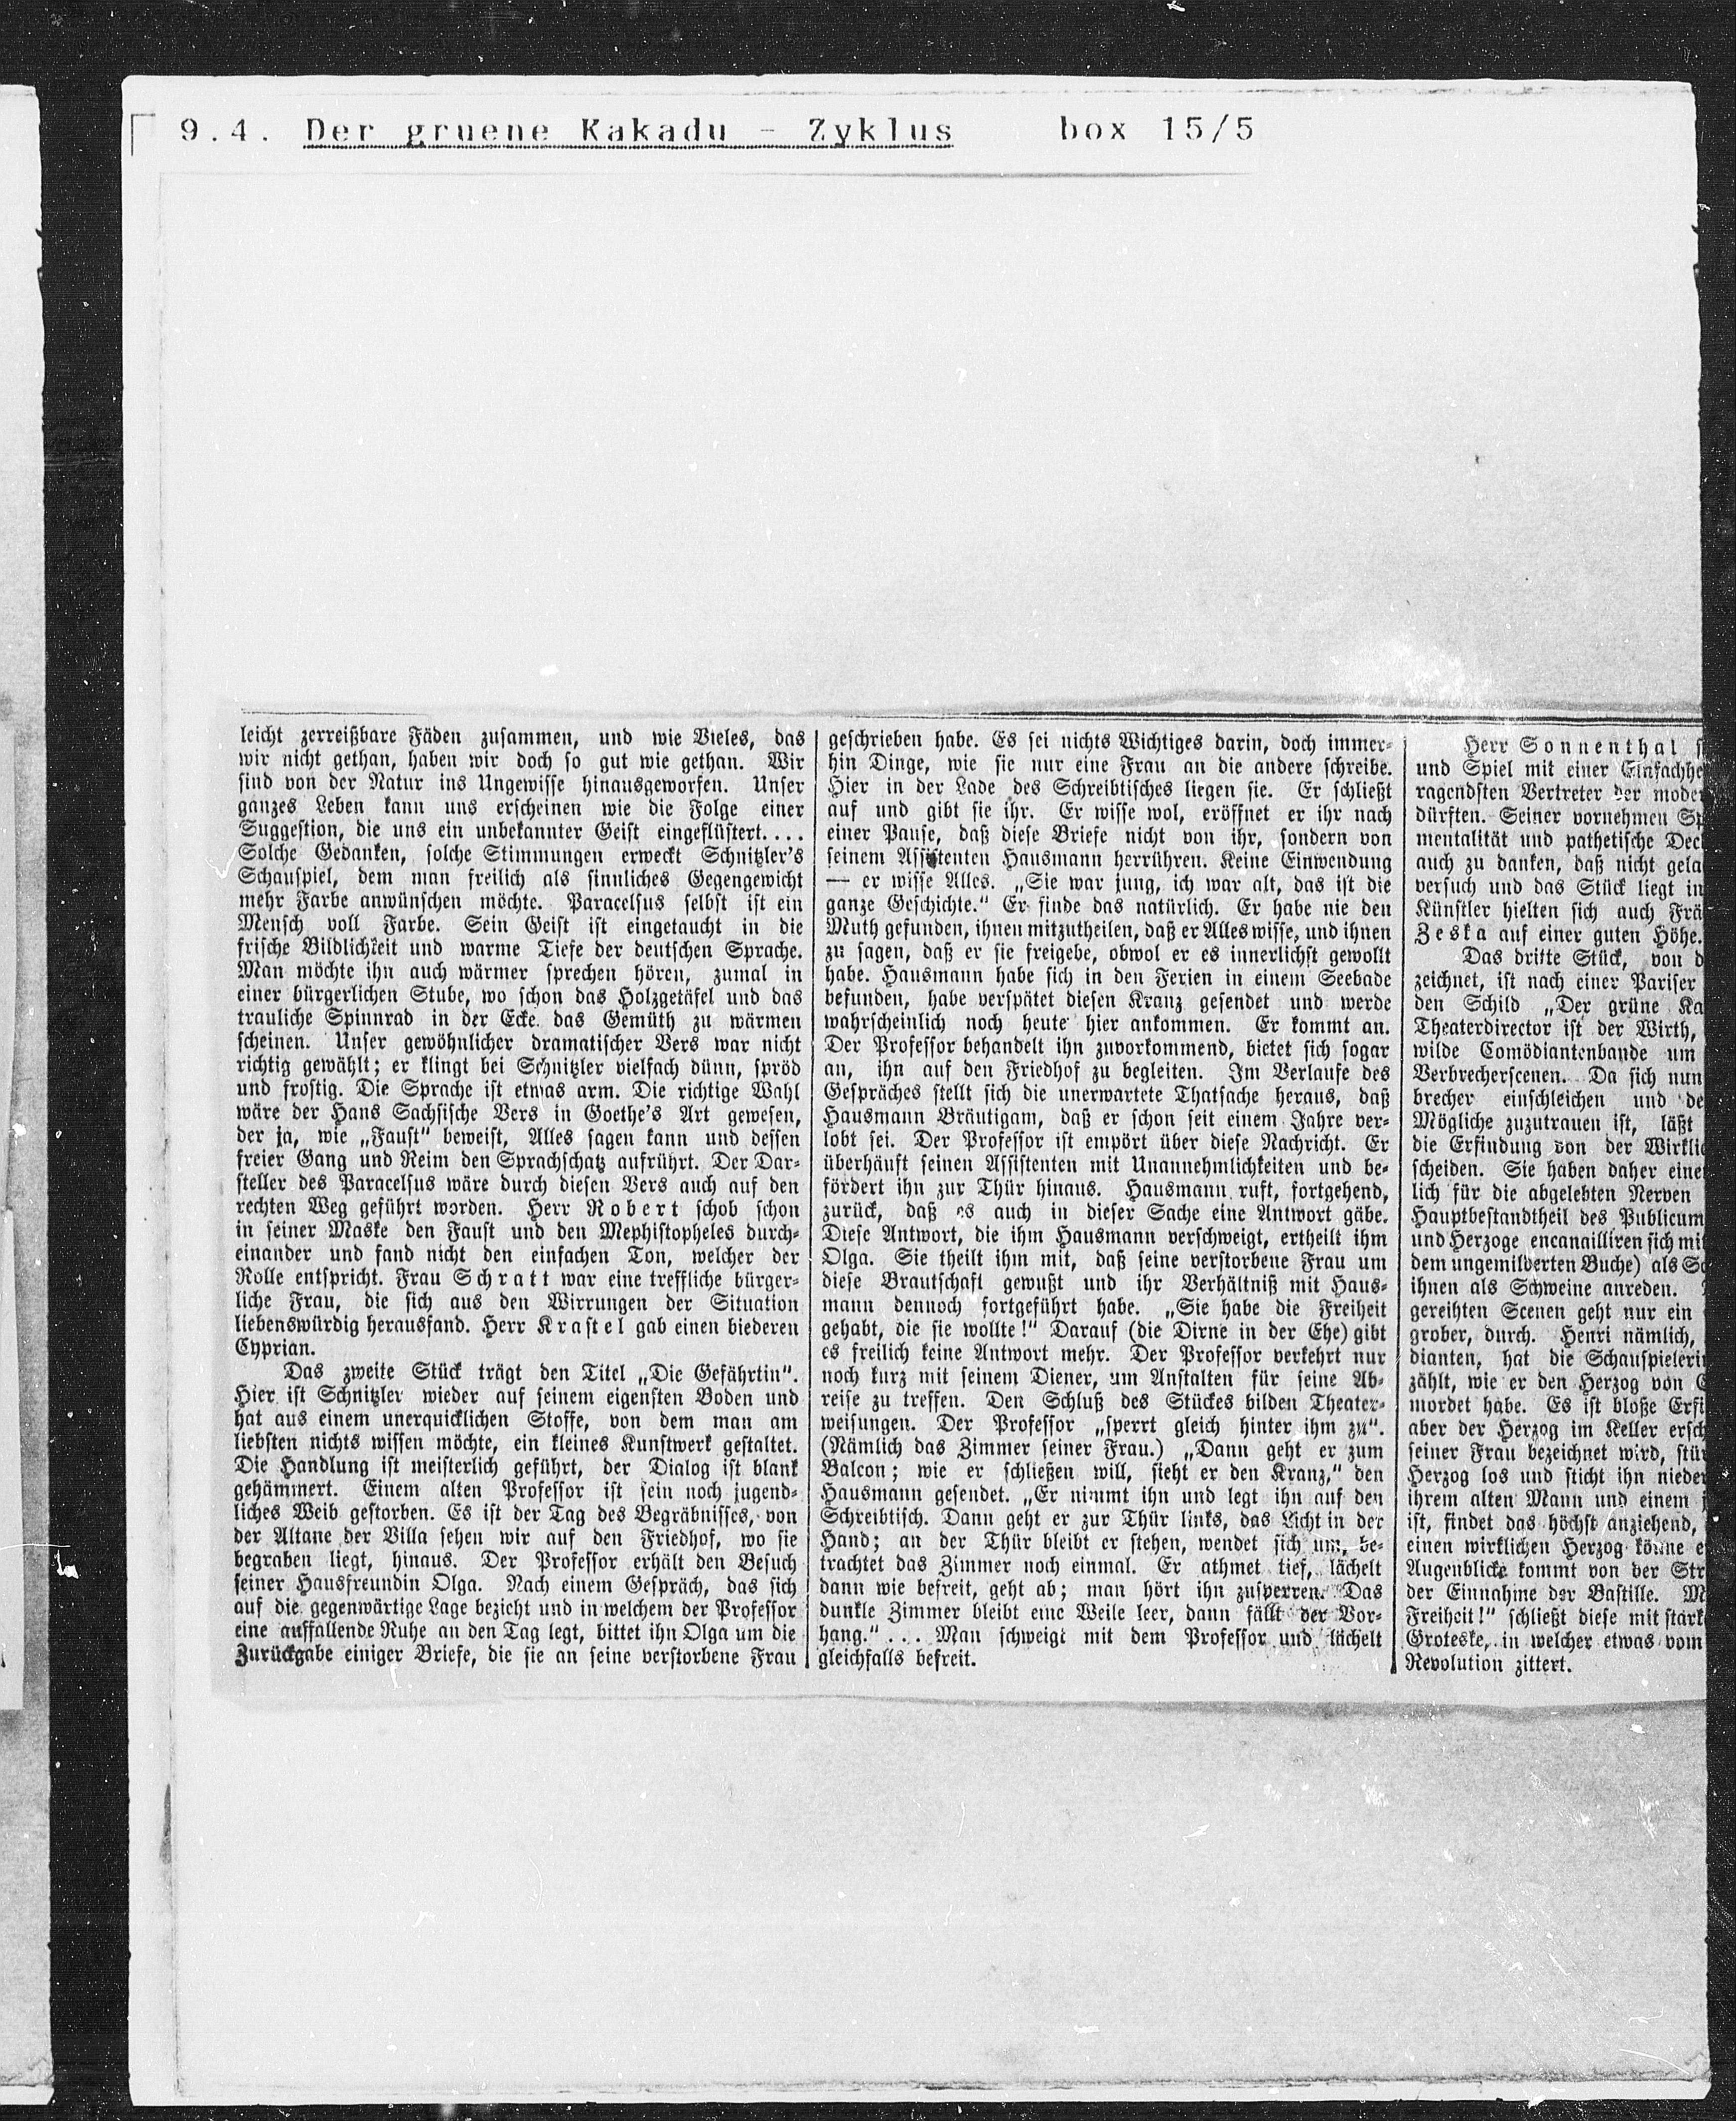 9.4. Der gruene Kakadu - Zyklus box 15/5
leicht zerreißbare Fäden zusammen, und wie Vieles, das
wir nicht gethan, haben wir doch so gut wie gethan. Wir
sind von der Natur ins Ungewisse hinausgeworfen. Unser
ganzes Leben kann uns erscheinen wie die Folge einer
Suggestion, die uns ein unbekannter Geist eingeflüstert....
Solche Gedanken, solche Stimmungen erweckt Schnitzler's
Schauspiel, dem man freilich als sinnliches Gegengewicht
mehr Farbe anwünschen möchte. Paracelsus selbst ist ein
Mensch voll Farbe. Sein Geist ist eingetaucht in die
frische Bildlichkeit und warme Tiefe der deutschen Sprache.
Man möchte ihn auch wärmer sprechen hören, zumal in
einer bürgerlichen Stube, wo schon das Holzgetäfel und das
trauliche Spinnrad in der Ecke das Gemüth zu wärmen
scheinen. Unser gewöhnlicher dramatischer Vers war nicht
richtig gewählt; er klingt bei Schnitzler vielfach dünn, spröd
und frostig. Die Sprache ist etwas arm. Die richtige Wahl
wäre der Hans Sachsische Vers in Goethe's Art gewesen,
der ja, wie „Faust“ beweist, Alles sagen kann und dessen
freier Gang und Reim den Sprachschatz aufrührt. Der Dar-
steller des Paracelsus wäre durch diesen Vers auch auf den
rechten Weg geführt worden. Herr Robert schob schon
in seiner Maske den Faust und den Mephistopheles durch-
einander und fand nicht den einfachen Ton, welcher der
Rolle entspricht. Frau Schratt war eine treffliche bürger-
liche Frau, die sich aus den Wirrungen der Situation
liebenswürdig herausfand. Herr Krastel gab einen biederen
Cyprian.
Das zweite Stück trägt den Titel „Die Gefährtin“.
Hier ist Schnitzler wieder auf seinem eigensten Boden und
hat aus einem unerquicklichen Stoffe, von dem man am
liebsten nichts wissen möchte, ein kleines Kunstwerk gestaltet.
Die Handlung ist meisterlich geführt, der Dialog ist blank
gehämmert. Einem alten Professor ist sein noch jugend-
liches Weib gestorben. Es ist der Tag des Begräbnisses, von
der Altane der Villa sehen wir auf den Friedhof, wo sie
begraben liegt, hinaus. Der Professor erhält den Besuch
seiner Hausfreundin Olga. Nach einem Gespräch, das sich
auf die gegenwärtige Lage bezieht und in welchem der Professor
eine auffallende Ruhe an den Tag legt, bittet ihn Olga um die
Zurückgabe einiger Briefe, die sie an seine verstorbene Frau
geschrieben habe. Es sei nichts Wichtiges darin, doch immer-
hin Dinge, wie sie nur eine Frau an die andere schreibe.
Hier in der Lade des Schreibtisches liegen sie. Er schließt
auf und gibt sie ihr. Er wisse wol, eröffnet er ihr nach
einer Pause, daß diese Briefe nicht von ihr, sondern von
seinem Assistenten Hausmann herrühren. Keine Einwendung
— er wisse Alles. „Sie war jung, ich war alt, das ist die
ganze Geschichte.“ Er finde das natürlich. Er habe nie den
Muth gefunden, ihnen mitzutheilen, daß er Alles wisse, und ihnen
zu sagen, daß er sie freigebe, obwol er es innerlichst gewollt
habe. Hausmann habe sich in den Ferien in einem Seebade
befunden, habe verspätet diesen Kranz gesendet und werde
wahrscheinlich noch heute hier ankommen. Er kommt an.
Der Professor behandelt ihn zuvorkommend, bietet sich sogar
an, ihn auf den Friedhof zu begleiten. Im Verlaufe des
Gespräches stellt sich die unerwartete Thatsache heraus, daß
Hausmann Bräutigam, daß er schon seit einem Jahre ver-
lobt sei. Der Professor ist empört über diese Nachricht. Er
überhäuft seinen Assistenten mit Unannehmlichkeiten und be-
fördert ihn zur Thür hinaus. Hausmann ruft, fortgehend,
zurück, daß es auch in dieser Sache eine Antwort gäbe.
Diese Antwort, die ihm Hausmann verschweigt, ertheilt ihm
Olga. Sie theilt ihm mit, daß seine verstorbene Frau um
diese Brautschaft gewußt und ihr Verhältniß mit Haus-
mann dennoch fortgeführt habe. „Sie habe die Freiheit
gehabt, die sie wollte!“ Darauf (die Dirne in der Ehe) gibt
es freilich keine Antwort mehr. Der Professor verkehrt nur
noch kurz mit seinem Diener, um Anstalten für seine Ab-
reise zu treffen. Den Schluß des Stückes bilden Theater-
weisungen. Der Professor „sperrt gleich hinter ihm zu“.
(Nämlich das Zimmer seiner Frau.) „Dann geht er zum
Balcon; wie er schließen will, sieht er den Kranz,“ den
Hausmann gesendet. „Er nimmt ihn und legt ihn auf den
Schreibtisch. Dann geht er zur Thür links, das Licht in der
Hand; an der Thür bleibt er stehen, wendet sich um, be-
trachtet das Zimmer noch einmal. Er athmet tief, lächelt
dann wie befreit, geht ab; man hört ihn zusperren. Das
dunkle Zimmer bleibt eine Weile leer, dann fällt der Vor-
hang.“ ... Man schweigt mit dem Professor und lächelt
gleichfalls befreit.
Herr Sonnenthal s
und Spiel mit einer Einfachhe
ragendsten Vertreter der moder
dürften. Seiner vornehmen Sp
mentalität und pathetische Decl
auch zu danken, daß nicht gela
versuch und das Stück liegt in
Künstler hielten sich auch Frä
Zeska auf einer guten Höhe.
Das dritte Stück, von d
zeichnet, ist nach einer Pariser
den Schild „Der grüne Ka
Theaterdirector ist der Wirth,
wilde Comödiantenbande um
Verbrecherscenen. Da sich nun
brecher einschleichen und de
Mögliche zuzutrauen ist, läßt
die Erfindung von der Wirklic
scheiden. Sie haben daher einen
lich für die abgelebten Nerven
Hauptbestandtheil des Publicum
und Herzoge encanailliren sich mit
dem ungemilderten Buche) als Sc
ihnen als Schweine anreden.
gereihten Scenen geht nur ein
grober, durch. Henri nämlich,
dianten, hat die Schauspielerin
zählt, wie er den Herzog von C
mordet habe. Es ist bloße Erfi
aber der Herzog im Keller ersch
seiner Frau bezeichnet wird, stür
Herzog los und sticht ihn nieder
ihrem alten Mann und einem j
ist, findet das höchst anziehend,
einen wirklichen Herzog könne e
Augenblicke kommt von der Str
der Einnahme der Bastille. M
Freiheit!“ schließt diese mit stark
Groteske, in welcher etwas vom
Revolution zittert.